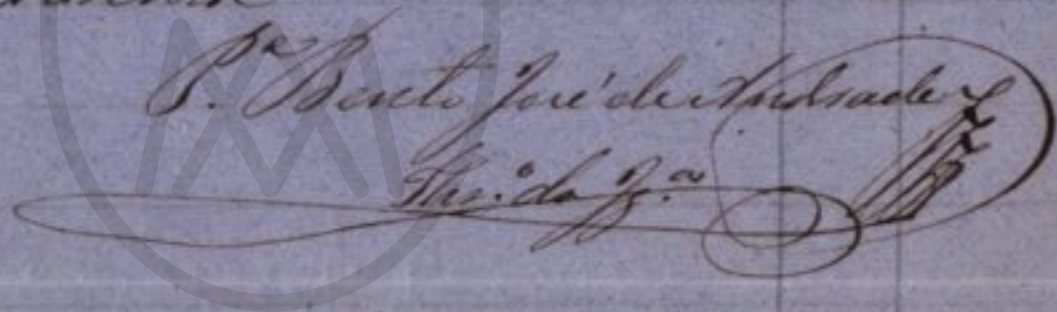 P.ª Bento José de Andrade
Thr.º da Fz.ª